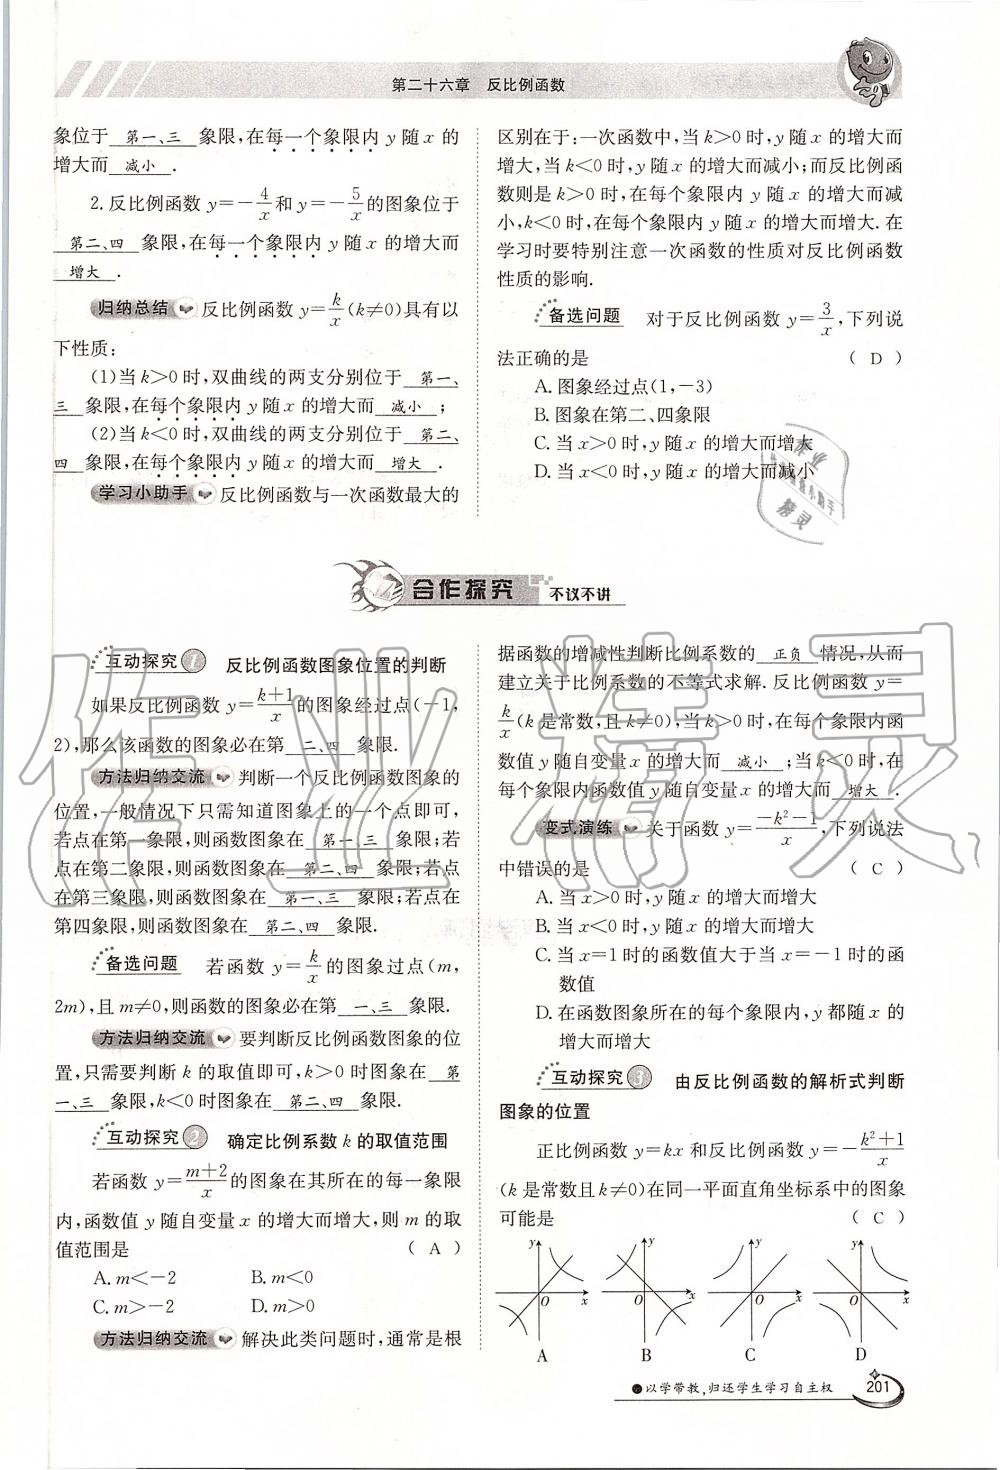 第二十六章　反比例函数
象位于 第一、三 象限,在每一个象限内 y 随 x 的
增大而 减小 .
2. 反比例函数 y=-4/x 和 y=-5/x 的图象位于
第二、四 象限,在每一个象限内 y 随 x 的增大而
增大 .
归纳总结 反比例函数 y=k/x (k≠0)具有以
下性质:
(1)当 k>0 时,双曲线的两支分别位于 第一、
三 象限,在每个象限内 y 随 x 的增大而 减小 ;
(2)当 k<0 时,双曲线的两支分别位于 第二、
四 象限,在每个象限内 y 随 x 的增大而 增大 .
学习小助手 反比例函数与一次函数最大的
区别在于:一次函数中,当 k>0 时,y 随 x 的增大而
增大,当 k<0 时,y 随 x 的增大而减小;而反比例函
数则是 k>0 时,在每个象限内 y 随 x 的增大而减
小,k<0 时,在每个象限内 y 随 x 的增大而增大. 在
学习时要特别注意一次函数的性质对反比例函数
性质的影响.
备选问题 对于反比例函数 y=3/x,下列说
法正确的是 ( D )
A. 图象经过点(1,-3)
B. 图象在第二、四象限
C. 当 x>0 时,y 随 x 的增大而增大
D. 当 x<0 时,y 随 x 的增大而减小
合作探究 不议不讲
互动探究 1 反比例函数图象位置的判断
如果反比例函数 y=(k+1)/x 的图象经过点(-1,
2),那么该函数的图象必在第 二、四 象限.
方法归纳交流 判断一个反比例函数图象的
位置,一般情况下只需知道图象上的一个点即可,
若点在第一象限,则函数图象在 第一、三 象限;若
点在第二象限,则函数图象在 第二、四 象限;若点
在第三象限,则函数图象在 第一、三 象限;若点在
第四象限,则函数图象在 第二、四 象限.
备选问题 若函数 y=k/x 的图象过点(m,
2m),且 m≠0,则函数的图象必在第 一、三 象限.
方法归纳交流 要判断反比例函数图象的位
置,只需要判断 k 的取值即可,k>0 时图象在 第
一、三 象限,k<0 时图象在 第二、四 象限.
互动探究 2 确定比例系数 k 的取值范围
若函数 y=(m+2)/x 的图象在其所在的每一象限
内,函数值 y 随自变量 x 的增大而增大,则 m 的取
值范围是 ( A )
A. m<-2 B. m<0
C. m>-2 D. m>0
方法归纳交流 解决此类问题时,通常是根
据函数的增减性判断比例系数的 正负 情况,从而
建立关于比例系数的不等式求解. 反比例函数 y=
k/x (k 是常数,且 k≠0),当 k>0 时,在每个象限内函
数值 y 随自变量 x 的增大而 减小 ;当 k<0 时,在
每个象限内函数值 y 随自变量 x 的增大而 增大 .
变式演练 关于函数 y=(-k²-1)/x,下列说法
中错误的是 ( C )
A. 当 x>0 时,y 随 x 的增大而增大
B. 当 x<0 时,y 随 x 的增大而增大
C. 当 x=1 时的函数值大于当 x=-1 时的函
数值
D. 在函数图象所在的每个象限内,y 都随 x 的
增大而增大
互动探究 3 由反比例函数的解析式判断
图象的位置
正比例函数 y=kx 和反比例函数 y=-(k²+1)/x
(k 是常数且 k≠0)在同一平面直角坐标系中的图象
可能是 ( C )
y O x y O x y O x y O x
A B C D
以学带教,归还学生学习自主权
201
作业精灵